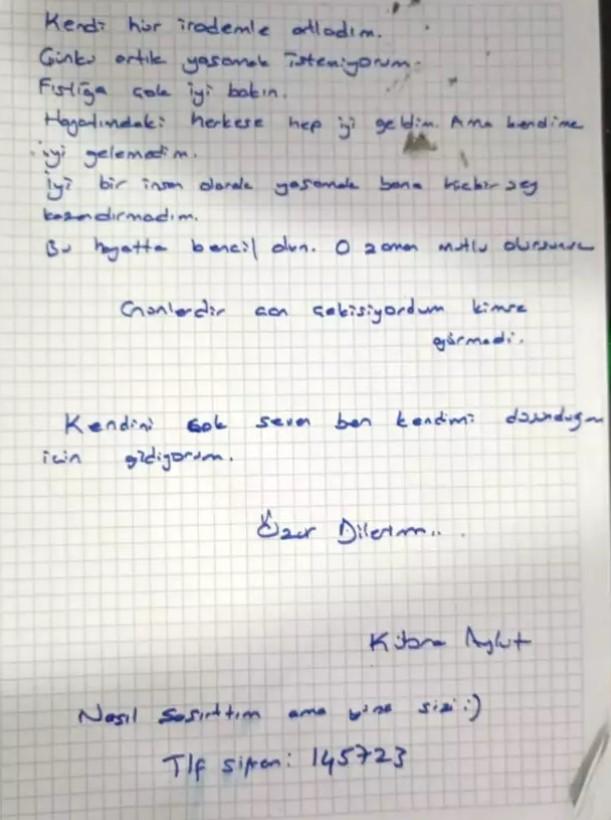 Kendi hür irademle atladım.
Çünkü artık yaşamak istemiyorum.
Fıstığa çok iyi bakın.
Hayatımdaki herkese hep iyi geldim. Ama kendime
iyi gelemedim.
İyi bir insan olarak yaşamak bana hiçbir şey
kazandırmadım.
Bu hayatta bencil olun. O zaman mutlu olursunuz
Günlerdir can çekişiyordum kimse
görmedi.
Kendini çok seven ben kendimi düşündüğüm
için gidiyorum.
Özür Dilerim...
Kübra Aykut
Nasıl şaşırttım ama yine sizi :)
Tlf şifren: 145723